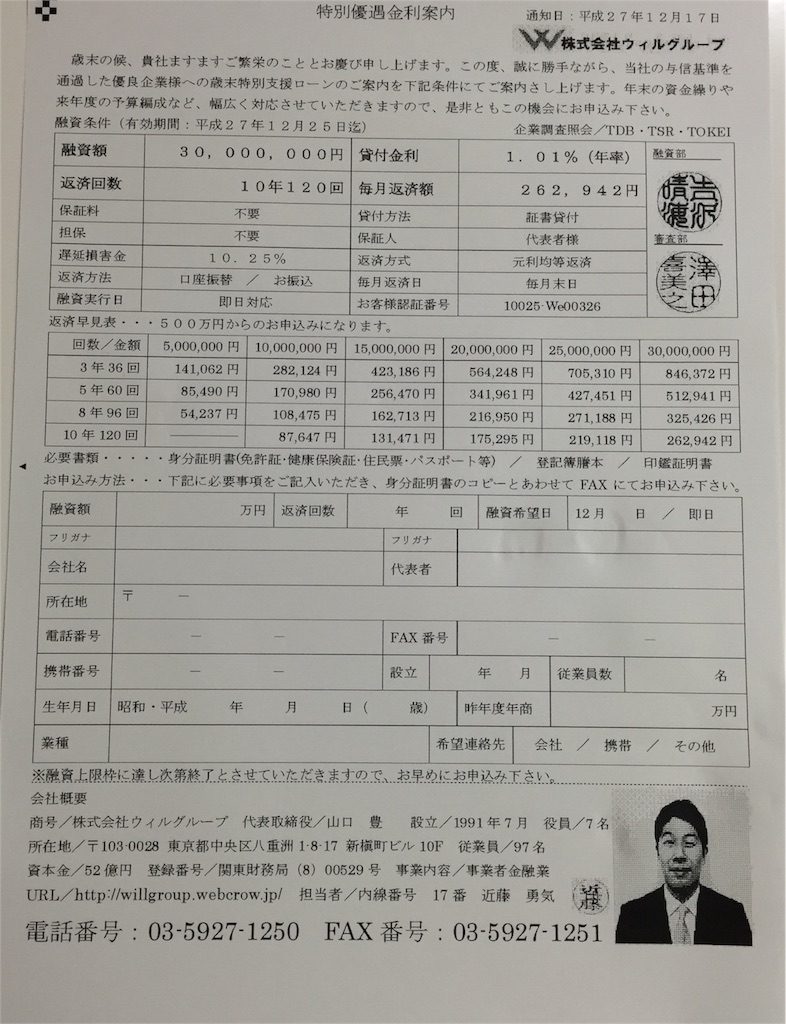 特別優遇金利案内
通知日：平成27年12月17日
W 株式会社ウィルグループ
歳末の候、貴社ますますご繁栄のこととお慶び申し上げます。この度、誠に勝手ながら、当社の与信基準を
通過した優良企業様への歳末特別支援ローンのご案内を下記条件にてご案内さし上げます。年末の資金繰りや
来年度の予算編成など、幅広く対応させていただきますので、是非ともこの機会にお申込み下さい。
融資条件（有効期間：平成27年12月25日迄） 企業調査照会／TDB・TSR・TOKEI
融資額 30，000，000円 貸付金利 1．01％（年率） 融資部
返済回数 10年120回 毎月返済額 262，942円
保証料 不要 貸付方法 証書貸付
担保 不要 保証人 代表者様 審査部
遅延損害金 10．25％ 返済方式 元利均等返済
返済方法 口座振替 ／ お振込 毎月返済日 毎月末日
融資実行日 即日対応 お客様認証番号 10025-We00326
吉沢晴演
澤田喜美之
返済早見表・・・500万円からのお申込みになります。
回数／金額 5,000,000円 10,000,000円 15,000,000円 20,000,000円 25,000,000円 30,000,000円
3年36回 141,062円 282,124円 423,186円 564,248円 705,310円 846,372円
5年60回 85,490円 170,980円 256,470円 341,961円 427,451円 512,941円
8年96回 54,237円 108,475円 162,713円 216,950円 271,188円 325,426円
10年120回 ――― 87,647円 131,471円 175,295円 219,118円 262,942円
必要書類・・・・・身分証明書(免許証・健康保険証・住民票・パスポート等) ／ 登記簿謄本 ／ 印鑑証明書
お申込み方法・・・下記に必要事項をご記入いただき、身分証明書のコピーとあわせてFAXにてお申込み下さい。
融資額 万円 返済回数 年 回 融資希望日 12月 日 ／ 即日
フリガナ フリガナ
会社名 代表者
所在地 〒 －
電話番号 － － FAX番号 － －
携帯番号 － － 設立 年 月 従業員数 名
生年月日 昭和・平成 年 月 日（ 歳） 昨年度年商 万円
業種 希望連絡先 会社 ／ 携帯 ／ その他
※融資上限枠に達し次第終了とさせていただきますので、お早めにお申込み下さい。
会社概要
商号／株式会社ウィルグループ 代表取締役／山口 豊 設立／1991年7月 役員／7名
所在地／〒103-0028 東京都中央区八重洲1-8-17 新槇町ビル10F 従業員／97名
資本金／52億円 登録番号／関東財務局（8）00529号 事業内容／事業者金融業
URL／http://willgroup.webcrow.jp/ 担当者／内線番号 17番 近藤 勇気 近藤
電話番号：03-5927-1250 FAX番号：03-5927-1251